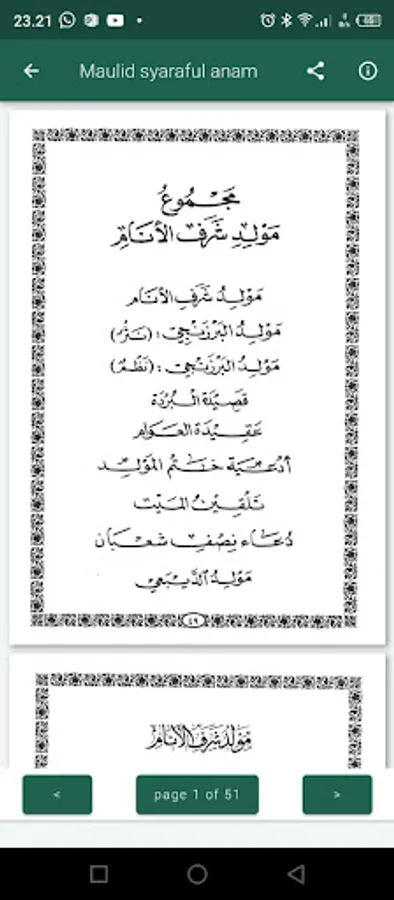 23.21
65
Maulid syaraful anam
مَجْمُوعُ
مَوْلِدِ شَرَفِ الْأَنَامِ
مَوْلِدُ شَرَفِ الْأَنَامِ
مَوْلِدُ الْبَرْزَنْجِي : (نَثْرٌ)
مَوْلِدُ الْبَرْزَنْجِي : (نَظْمٌ)
قَصِيْدَة الْبُرْدَة
عَقِيْدَة الْعَوَام
أَدْعِيَة خَتْمُ الْمَوْلِد
تَلْقِيْنُ الْمَيِّت
دُعَاء نِصْفِ شَعْبَان
مَوْلِدُ الدَّيْبَعِي
٤٩
مَوْلِدُ شَرَفِ الْأَنَامِ
<
page 1 of 51
>